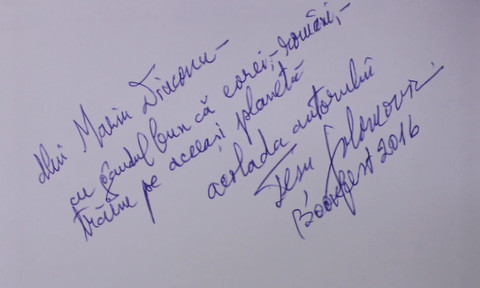 dlui Marin Diaconu –
cu gândul bun că evrei,-români,-
trăim pe aceeași planetă
acolada autorului
Teșu Solomovici
Bookfest 2016